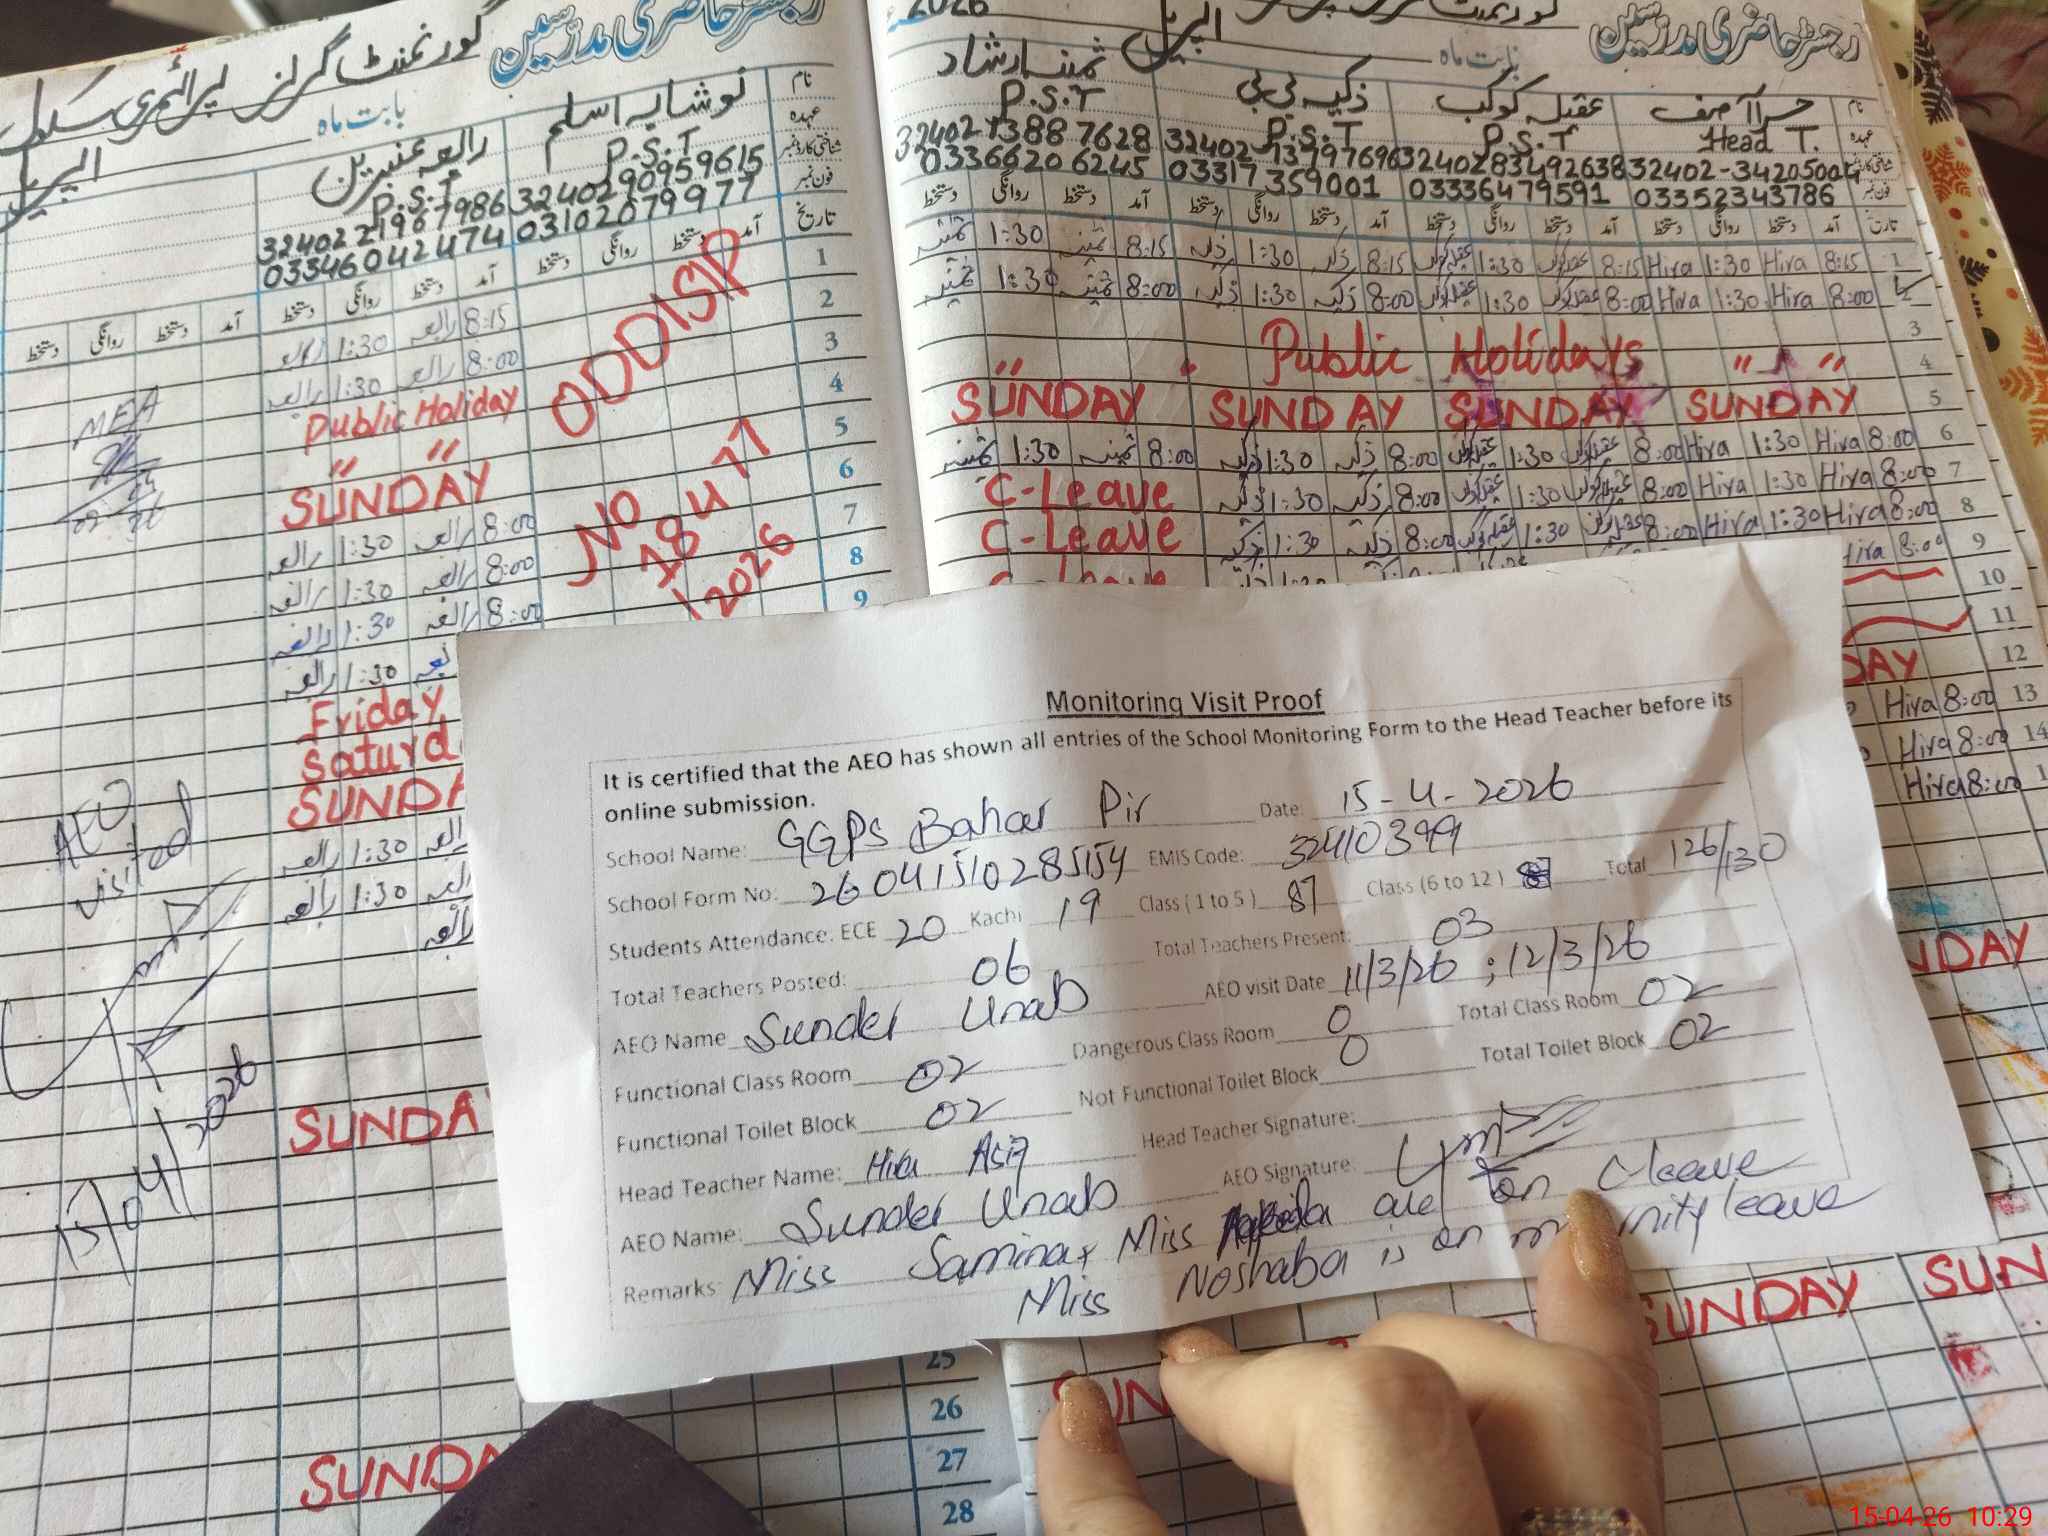 رجسٹر حاضری مدرسین
گورنمنٹ گرلز پرائمری سکول
بابت ماہ
اپریل
نام
نوشابہ اسلم
رابعہ عنبرین
عہدہ
P.S.T
P.S.T
شناختی کارڈ نمبر
32402 90959615
32402 21967986
فون نمبر
03102079977
03346042474
تاریخ
آمد دستخط روانگی دستخط
آمد دستخط روانگی دستخط
آمد دستخط روانگی دستخط
1
8:15 رابعہ 1:30 رابعہ
2
8:00 رابعہ 1:30 رابعہ
3
Public Holiday
4
" "
5
SUNDAY
6
8:00 رابعہ 1:30 رابعہ
7
8:00 رابعہ 1:30 رابعہ
8
8:00 رابعہ 1:30 رابعہ
9
1:30 رابعہ
Friday
Saturd
SUNDA
1:30 رابعہ
1:30 رابعہ
رابعہ
SUNDA
SUNDA
25
26
27
28
ODDISIP
NO
18 U 77
/2026
MEA
AEO
visited
15/04/2026
2026
رجسٹر حاضری مدرسین
بابت ماہ
اپریل
نام
حرا آصف
عقیلہ کوکب
ذکیہ بی بی
ثمینہ ارشاد
عہدہ
Head T.
P.S.T
P.S.T
P.S.T
شناختی کارڈ نمبر
32402-34205004
32402 83492638
32402 13797696
32402 7388 7628
فون نمبر
03352343786
03336479591
03317359001
03366206245
تاریخ
آمد دستخط روانگی دستخط
آمد دستخط روانگی دستخط
آمد دستخط روانگی دستخط
آمد دستخط روانگی دستخط
1
8:15 Hira 1:30 Hira
8:15 1:30
8:15 ذکیہ 1:30 ذکیہ
8:15 ثمینہ 1:30 ثمینہ
2
8:00 Hira 1:30 Hira
8:00 1:30
8:00 ذکیہ 1:30 ذکیہ
8:00 ثمینہ 1:30 ثمینہ
3
Public Holidays
4
" "
5
SUNDAY SUNDAY SUNDAY SUNDAY
6
8:00 Hira 1:30 Hira
8:00 1:30
8:00 ذکیہ 1:30 ذکیہ
8:00 ثمینہ 1:30 ثمینہ
7
8:00 Hira 1:30 Hira
8:00 1:30
8:00 ذکیہ 1:30 ذکیہ
C-Leave
8
8:00 Hira 1:30 Hira
8:00 1:30
8:00 ذکیہ 1:30 ذکیہ
C-Leave
9
Hira 8:00
C-Leave
10
11
12
DAY
13
Hira 8:00
14
Hira 8:00
1
Hira 8:00
NDAY
SUNDAY SUN
SUN
Monitoring Visit Proof
It is certified that the AEO has shown all entries of the School Monitoring Form to the Head Teacher before its
online submission.
School Name: GGPS Bahar Pir Date: 15-4-2026
School Form No: 26041510285154 EMIS Code: 32410399
Students Attendance: ECE 20 Kachi 19 Class (1 to 5) 87 Class (6 to 12) Total 126/130
Total Teachers Posted: 06 Total Teachers Present: 03
AEO Name Sunder Unab AEO visit Date 11/3/26 ; 12/3/26
Functional Class Room 02 Dangerous Class Room 0 Total Class Room 02
Functional Toilet Block 02 Not Functional Toilet Block 0 Total Toilet Block 02
Head Teacher Name: Hira Asif Head Teacher Signature:
AEO Name: Sunder Unab AEO Signature:
Remarks: Miss Samina & Miss are on C leave
Miss Noshaba is on m nity leave
15-04-26 10:29